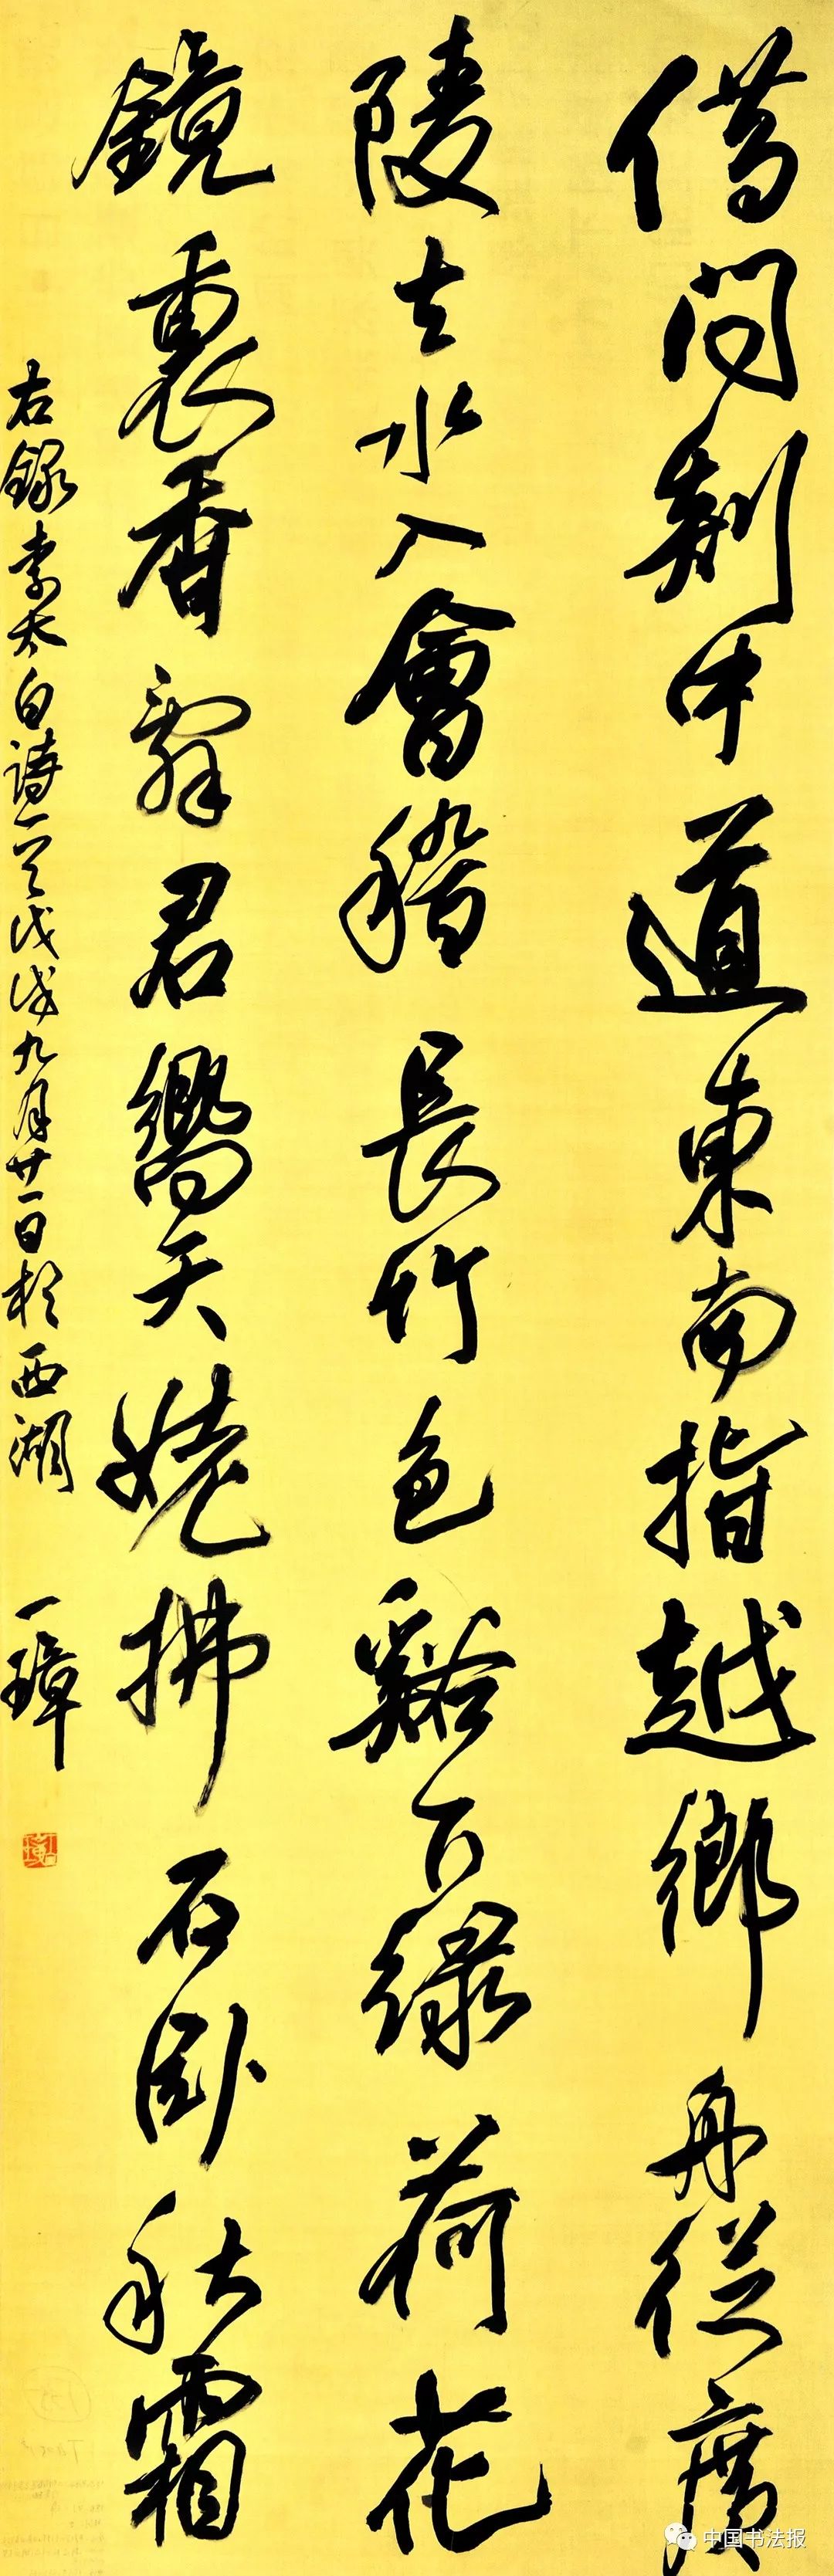 借问剡中道東南指越鄉舟從廣
陵去水入會稽長竹色谿下綠荷花
鏡裏香辭君嚮天姥拂石卧秋霜
右録李太白詩一首戊戌九月廿一日於西湖
一璋
中国书法报